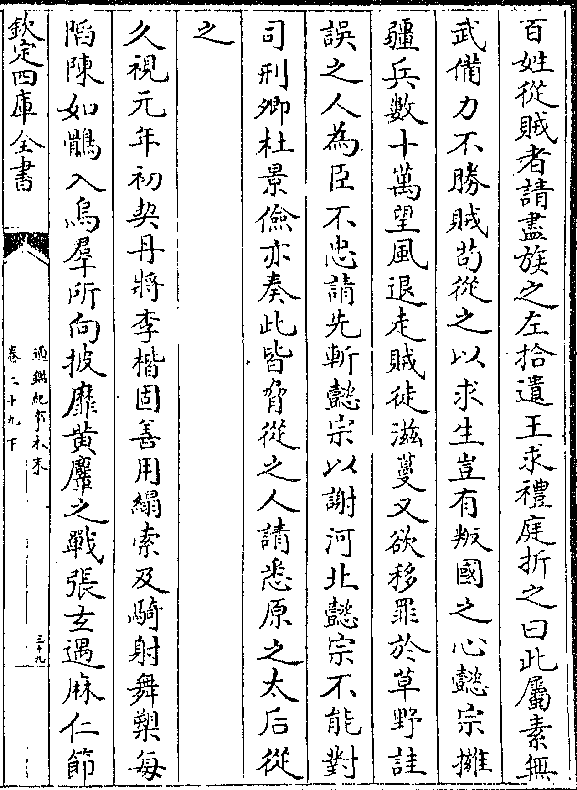 百姓從賊者請盡族之左拾遺王求禮庭折之曰此屬素無
武備力不勝賊苟從之以求生豈有叛國之心懿宗擁
疆兵數十萬望風退走賊徒滋蔓又欲移罪於草野詿
誤之人為臣不忠請先斬懿宗以謝河北懿宗不能對
司刑卿杜景儉亦奏此皆脅從之人請悉原之太后從
之
久視元年初契丹將李楷固善用縜索及騎射舞槊每
陷陳如鶻入烏羣所向披靡黃麞之戰張玄遇麻仁節
欽定四庫全書
通鑑紀事本末
卷二十九下
三十九